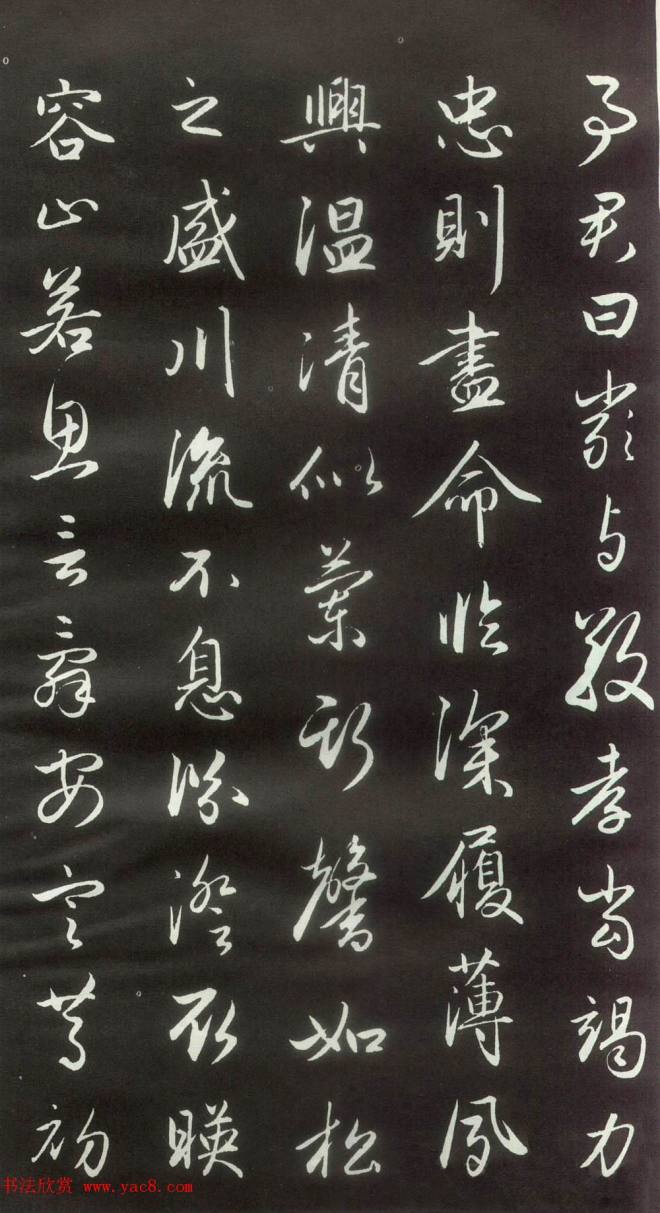 事君曰嚴與敬孝當竭力
忠則盡命臨深履薄夙
興溫清似蘭斯馨如松
之盛川流不息淵澄取暎
容止若思言辭安定篤初
书法欣赏 www.yac8.com